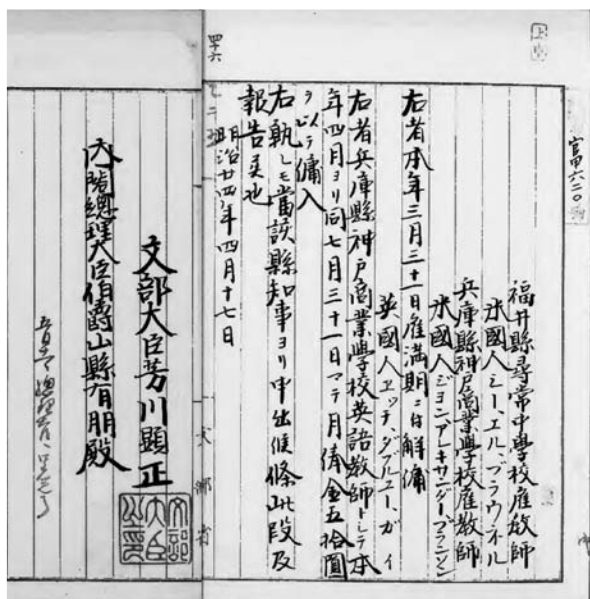 官甲六二〇
福井縣尋常中學校雇敎師
米國人シー、エル、ブラウネル
兵庫縣神戸商業學校雇敎師
米國人ジヨンアレキサンダーブランジン
右者本年三月三十一日雇滿期ニ付解傭
英國人エッチ、ダブルユー、ガイ
右者兵庫縣神戸商業學校英語敎師トシテ本
年四月ヨリ同七月三十一日マテ月俸金五拾圓
ヲ以テ傭入
右孰レモ當該縣知事ヨリ申出候條此段及
報告候也
明治廿四年四月十七日
文部省
文部大臣芳川顯正
文部大臣之印
內閣總理大臣伯爵山縣有朋殿